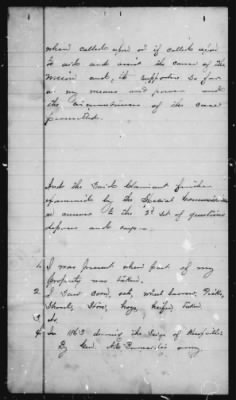 when called upon or if called upon
to aid and assist the cause of the
Union and its supporters so far
as my means and power and
the circumstances of the case
permitted.
And the said Claimant further
examined by the Special Commissioner
in answer to the 3d set of questions
deposes and says.
1. I was present when part of my
property was taken.
2. I saw corn, oats, wheat
hogs, taken
3. No
4. In 1863 during the Siege of Knoxville
By Gen. army